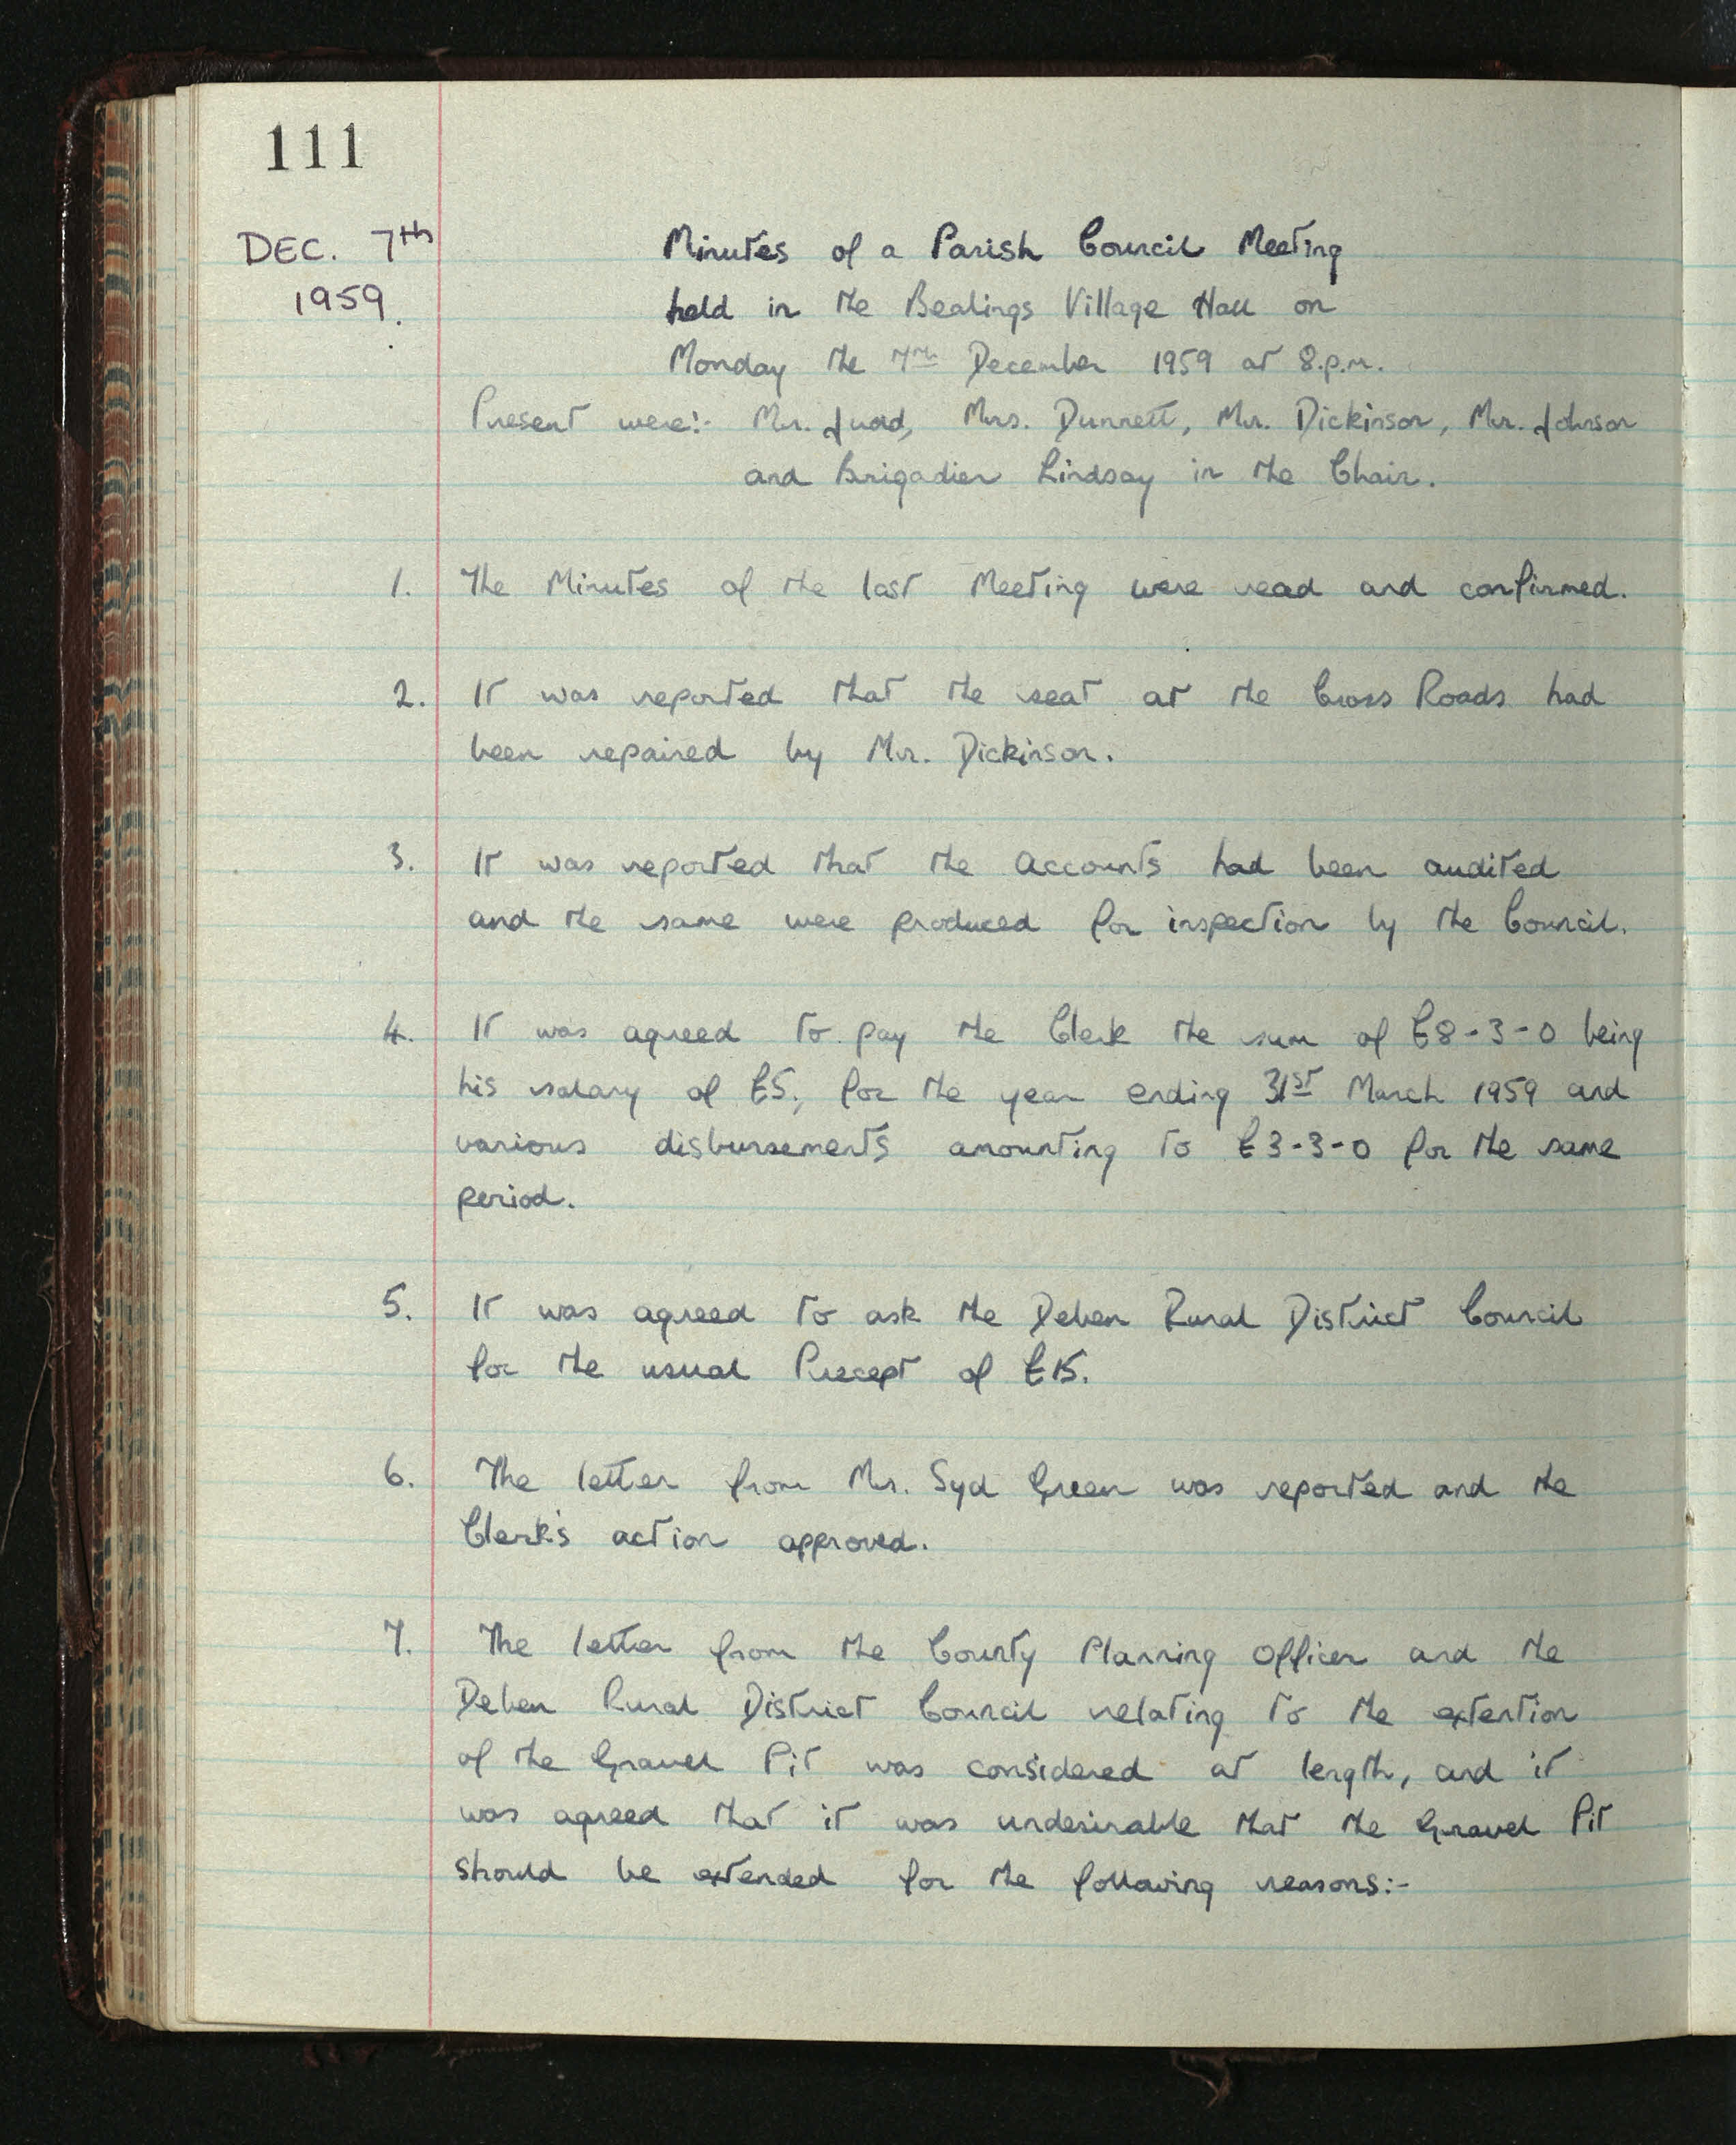 111
DEC. 7th
1959.
Minutes of a Parish Council Meeting
held in the Bealings Village Hall on
Monday the 7th December 1959 at 8.p.m.
Present were:- Mr. Judd, Mrs. Dunnett, Mr. Dickinson, Mr. Johnson
and Brigadier Lindsay in the Chair.
1. The Minutes of the last Meeting were read and confirmed.
2. It was reported that the seat at the Cross Roads had
been repaired by Mr. Dickinson.
3. It was reported that the Accounts had been audited
and the same were produced for inspection by the Council.
4. It was agreed to pay the Clerk the sum of £8-3-0 being
his salary of £5, for the year ending 31st March 1959 and
various disbursements amounting to £3-3-0 for the same
period.
5. It was agreed to ask the Deben Rural District Council
for the usual Precept of £15.
6. The letter from Mr. Syd Green was reported and the
Clerk's action approved.
7. The letter from the County Planning Officer and the
Deben Rural District Council relating to the extention
of the Gravel Pit was considered at length, and it
was agreed that it was undesirable that the Gravel Pit
should be extended for the following reasons:-